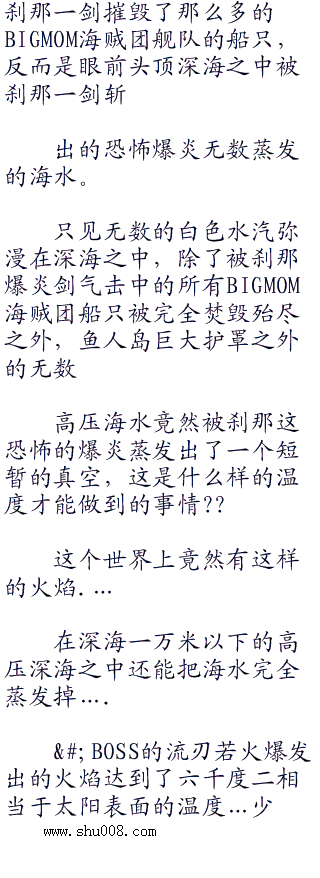 刹那一剑摧毁了那么多的
BIGMOM海贼团舰队的船只，
反而是眼前头顶深海之中被
刹那一剑斩
出的恐怖爆炎无数蒸发
的海水。
只见无数的白色水汽弥
漫在深海之中，除了被刹那
爆炎剑气击中的所有BIGMOM
海贼团船只被完全焚毁殆尽
之外，鱼人岛巨大护罩之外
的无数
高压海水竟然被刹那这
恐怖的爆炎蒸发出了一个短
暂的真空，这是什么样的温
度才能做到的事情??
这个世界上竟然有这样
的火焰....
在深海一万米以下的高
压深海之中还能把海水完全
蒸发掉....
&#;BOSS的流刃若火爆发
出的火焰达到了六千度二相
当于太阳表面的温度...少
www.shu008.com